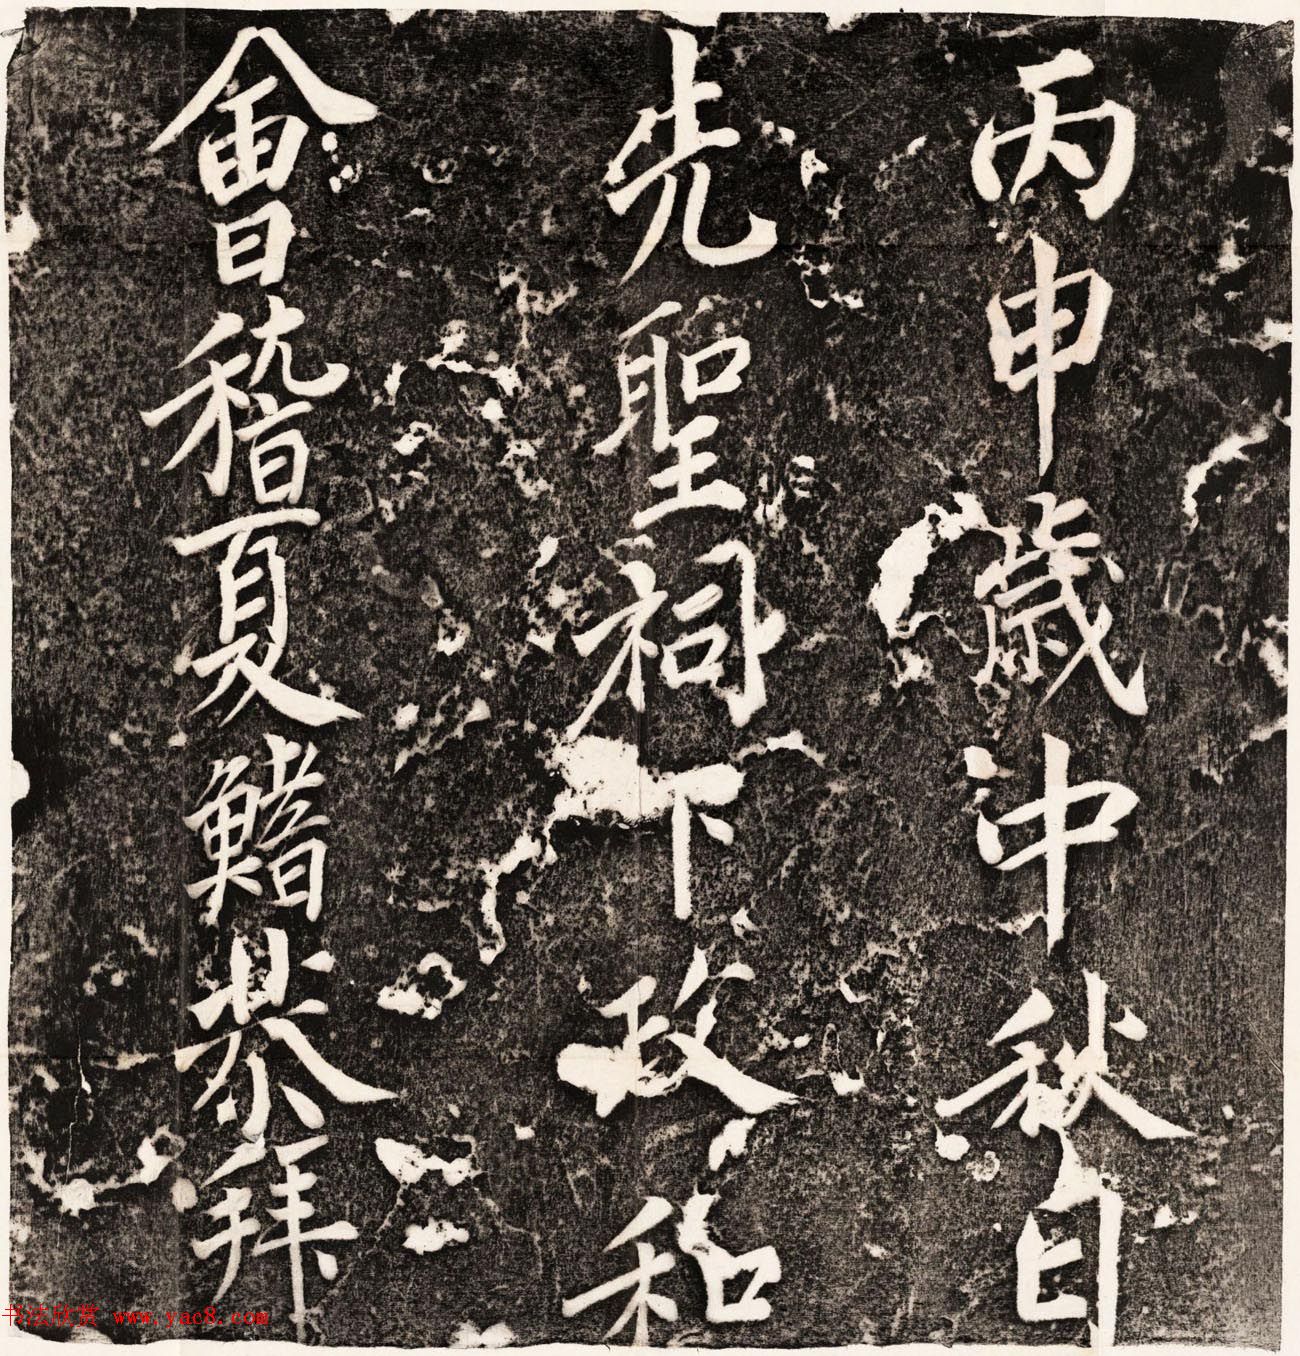 丙申歲中秋日
先聖祠下政和
會稽夏鰭恭拜
书法欣赏 www.yac8.com